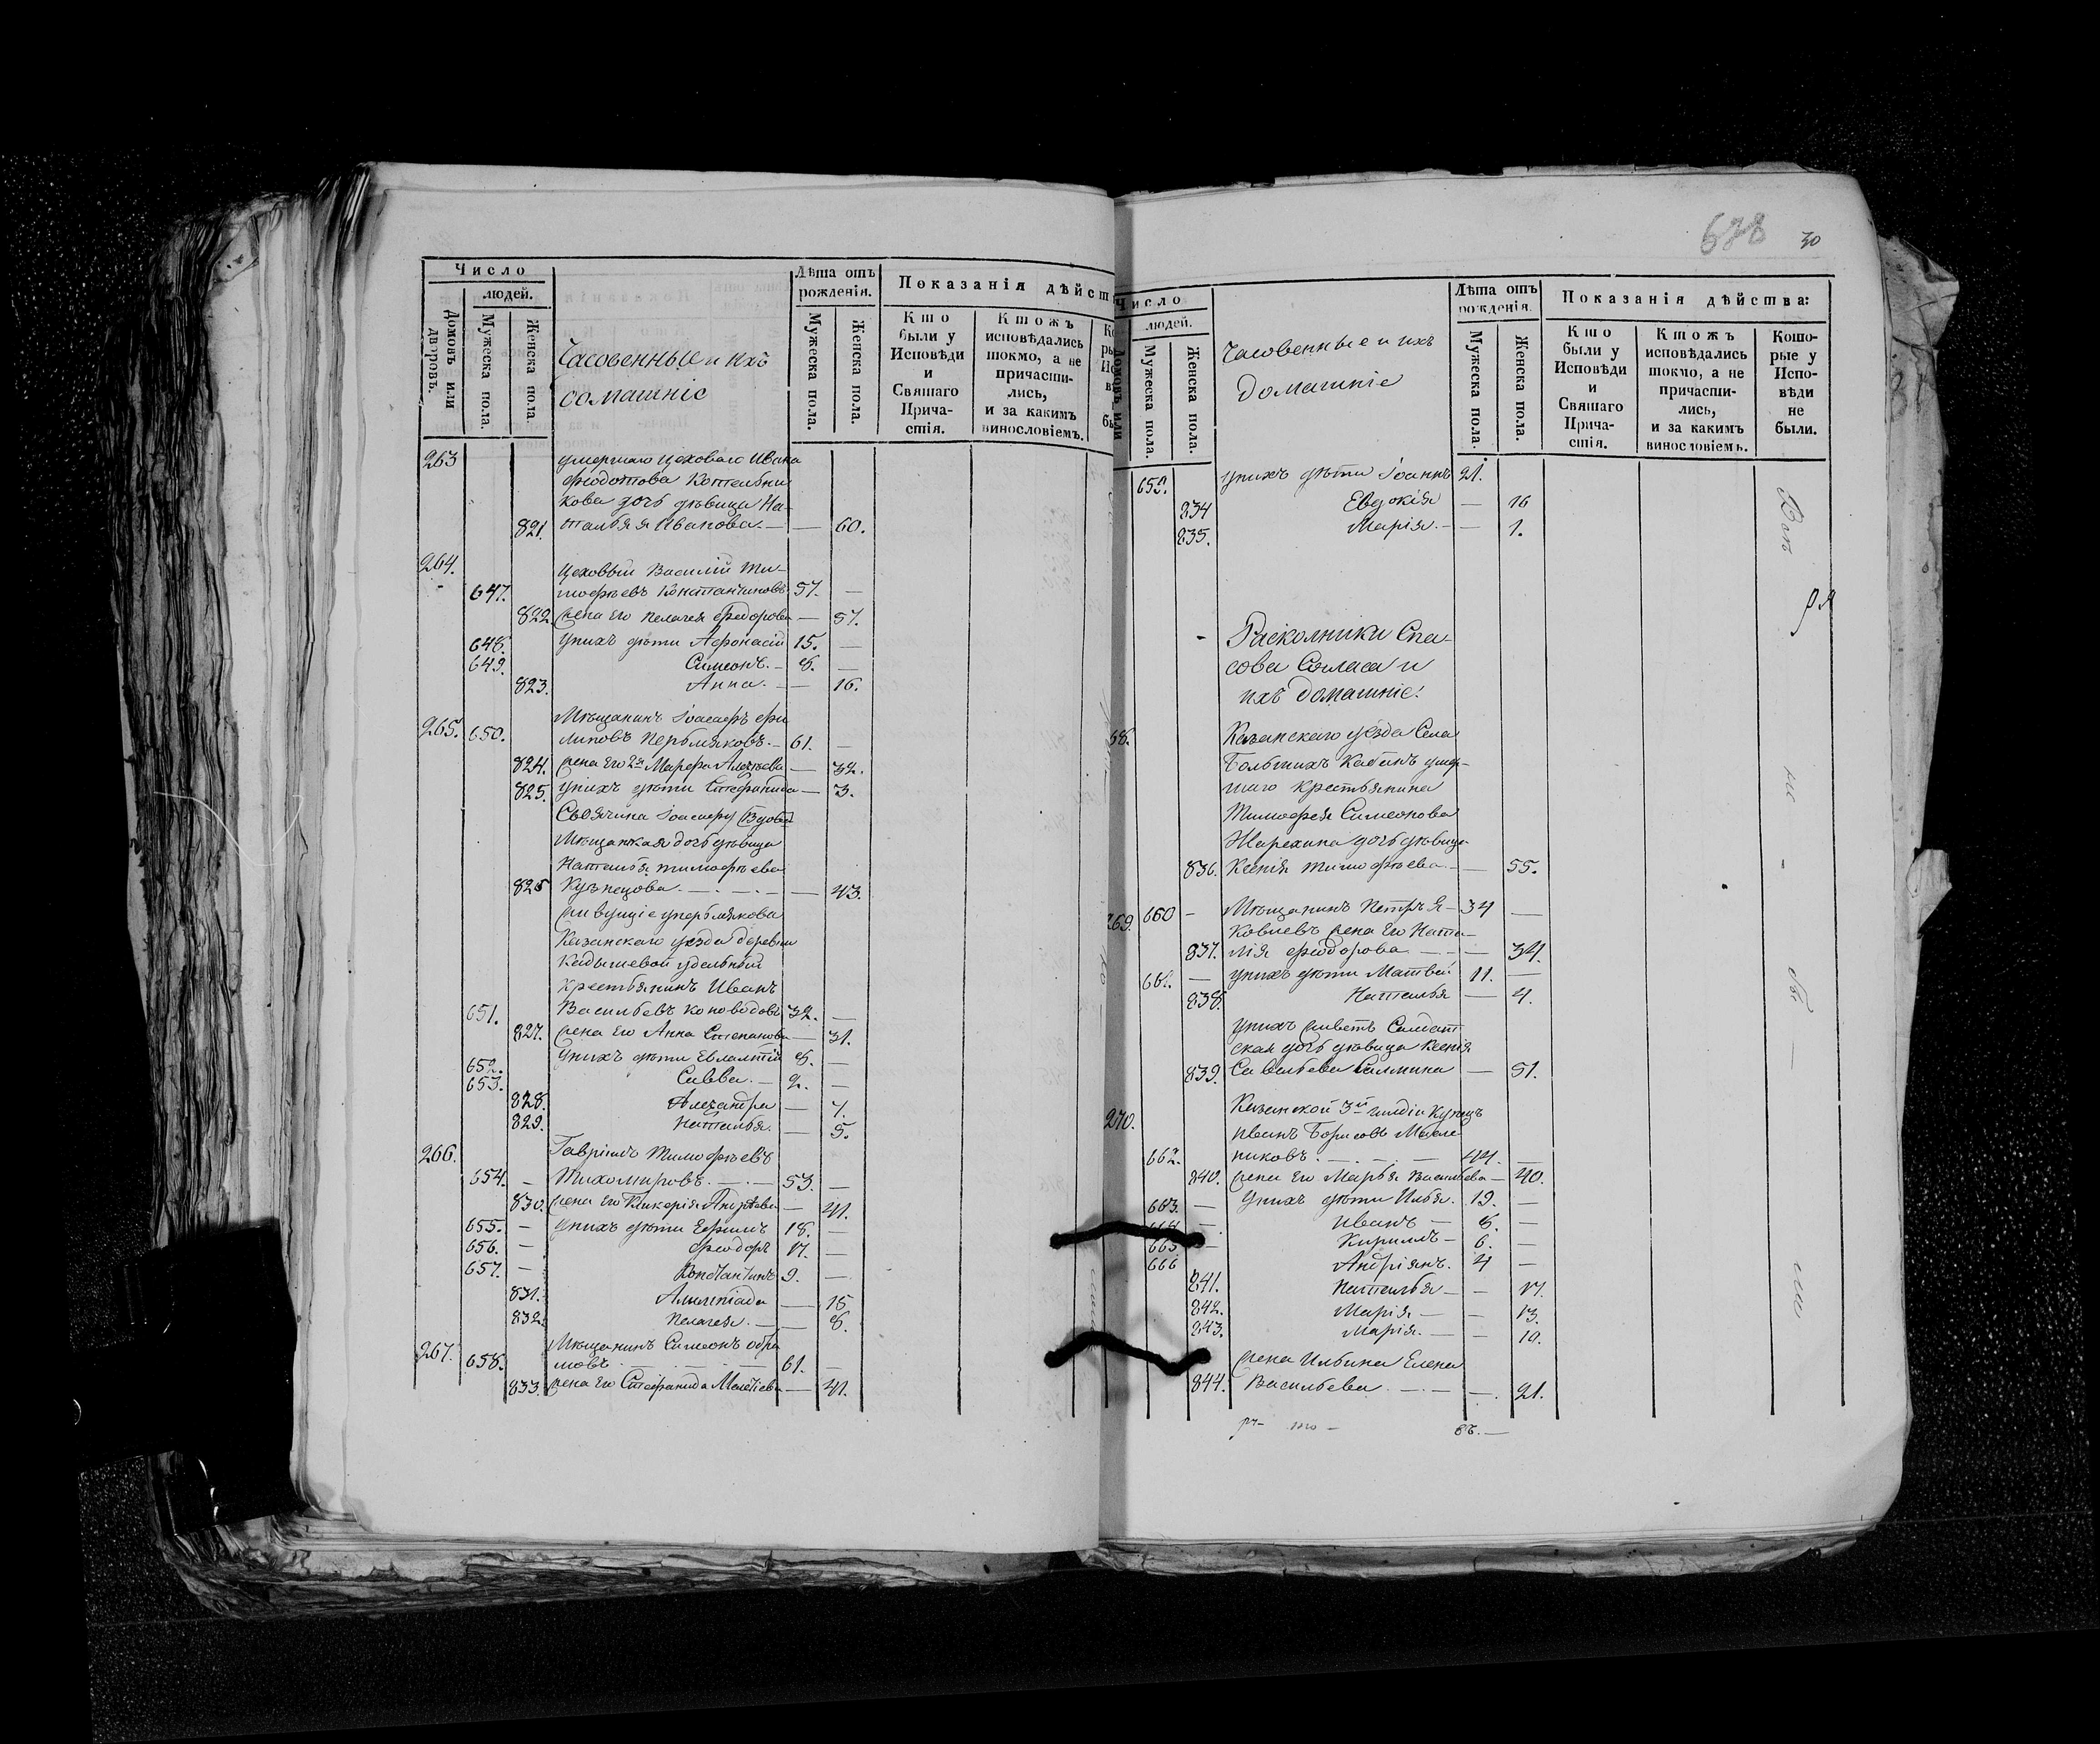 Число
людей.
Домовъ или дворовъ.
Мужеска пола.
Женска пола.
Часовенные и ихъ
домашніе
Лѣта отъ
рожденія.
Мужеска пола.
Женска пола.
Показанія дѣйст
Кто
были у
Исповѣди
и
Святаго
Прича-
стія.
Ктожъ
исповѣдались
токмо, а не
причасти-
лись,
и за какимъ
винословіемъ.
263 умершаго цеховаго Ивана
Ѳеодотова Котельни
кова дочь дѣвица На-
821. талья Иванова. — — 60.
264. Цеховый Василій Ти-
647. мофѣевъ Константиновъ 57. —
822. жена его Пелагея Ѳеодорова — 57.
648. у нихъ дѣти Афонасій 15. —
649. Симеонъ. — 8. —
823. Анна. — — 16.
Мѣщанинъ Іоасафъ Фи
265. 650. липовъ Перьмяковъ. — 61. —
824. жена его 2я Марфа Алеѯѣева — 32.
825. у нихъ дѣти Стефанида — 3.
Своячина Іоасафу
Мѣщанская дочь дѣвица
Наталья Тимофѣева
826 Кузнецова. — . — . — — 43.
живущіе у Перьмякова
Казанскаго уѣзда деревни
Кадышевой удельный
крестьянинъ Иванъ
651. Васильевъ Коноводовъ 32. —
827. жена его Анна Степанова — 31.
652. у нихъ дѣти Евлампій 8. —
653. Савва. — 2. —
828. Алеѯандра — 7.
829. Наталья. — 5.
266. Гавріилъ Тимофѣевъ
654. — Тихомировъ. — . — 53. —
830. жена его Гликерія Андрѣева — 41.
655. — у нихъ дѣти Ефимъ 18. —
656. — Ѳеодоръ 17. —
657. — Константинъ 9. —
831. Алимпіада — 15
832. Пелагея. — — 8.
Мѣщанинъ Симеонъ
267. 658. мовъ . — . — . — 61. —
833. жена его Стефанида — 41.
678 30
Число
людей.
Домовъ или
Мужеска пола.
Женска пола.
Часовенные и ихъ
домашніе
Лѣта отъ
рожденія.
Мужеска пола.
Женска пола.
Показанія дѣйства:
Кто
были у
Исповѣди
и
Святаго
Прича-
стія.
Ктожъ
исповѣдались
токмо, а не
причасти-
лись,
и за какимъ
винословіемъ.
Кото-
рые у
Испо-
вѣди
не
были.
659. у нихъ дѣти Іоаннъ 21.
834 Евдокія — 16
835. Марія. — — 1.
Расколники Спа-
сова Согласа и
ихъ домашніе:
68. Казанскаго уѣзда Села
Большихъ Кабанъ умер-
шаго крестьянина
Тимофея Симеонова
дочь дѣвица
836. Ксенія Тимофѣева — — 55.
269. 660 — Мѣщанинъ Петръ Я- 34 —
ковлевъ жена его Ната-
837. лія Ѳеодорова — — 34.
661. — у нихъ дѣти Матвей 11. —
838. Наталья — 4.
у нихъ живетъ Салдат
ская дочь дѣвица Ксенія
839. Савельева — 51.
270. Казанской 3й гилдіи Купецъ
Иванъ Борисовъ Масле
662. никовъ. — . — . — 44. —
840. жена его Марья Васильева — 40.
663. — у нихъ дѣти Илья. 19. —
664 — Иванъ — 8. —
665 — Кирилъ — 6. —
666 Андріянъ. 4 —
841. Наталья — — 17.
842. Марія — — 13.
843. Марія. — — 10.
жена Ильина Елена
844. Васильева. — . — — . 21.